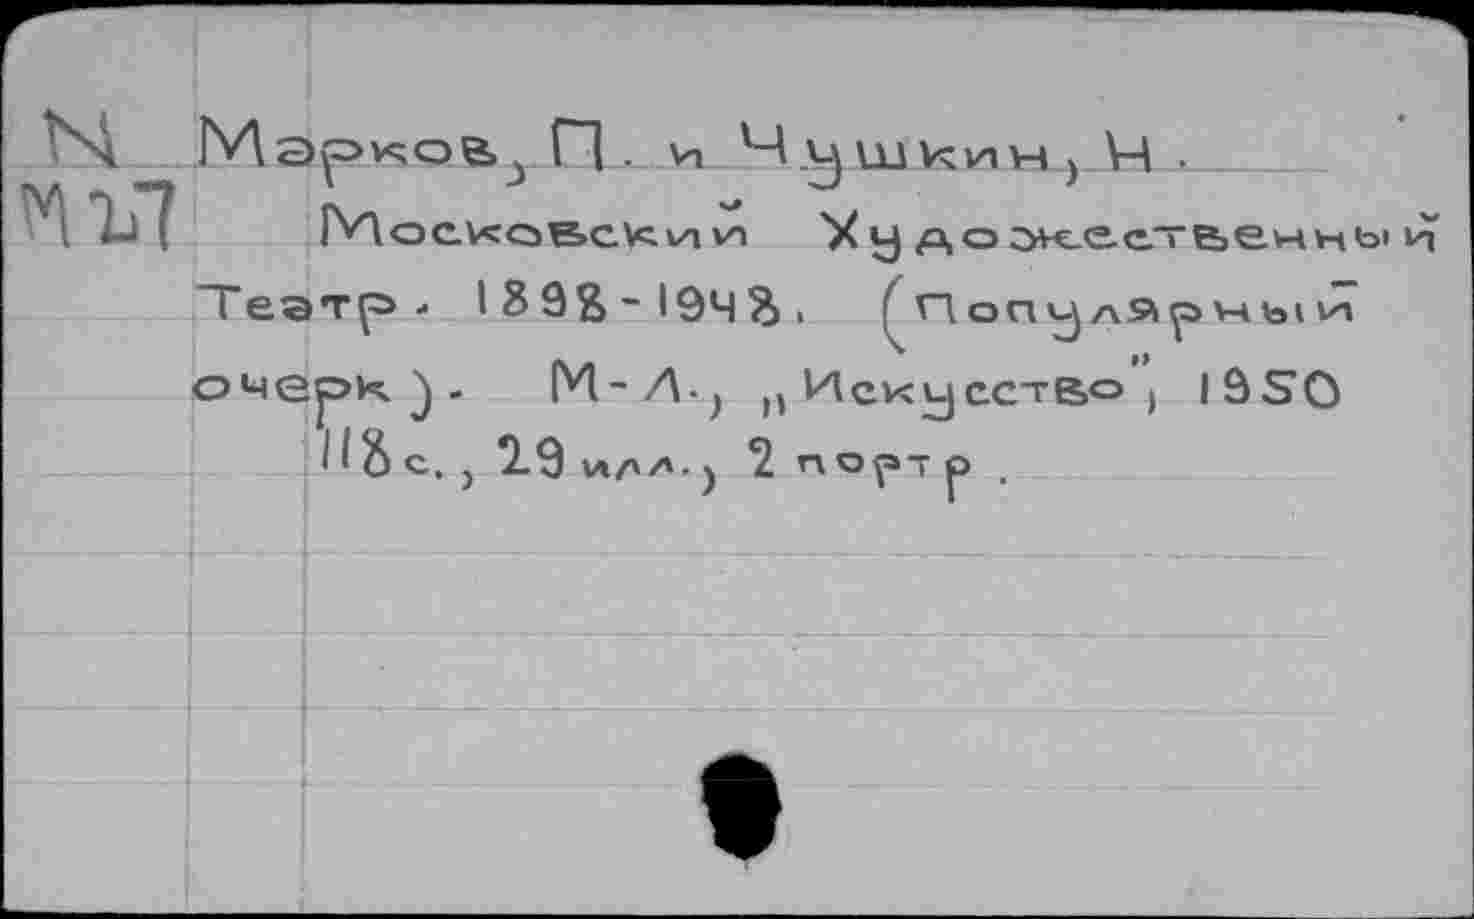 N Марков, П. и Чушкин, Н.
М27 Московский Художественный
Театр. 1898-1948. (Популярный
очерк). М-Л., „Искусство”, 1950
118 с., 29 илл., 2 портр.